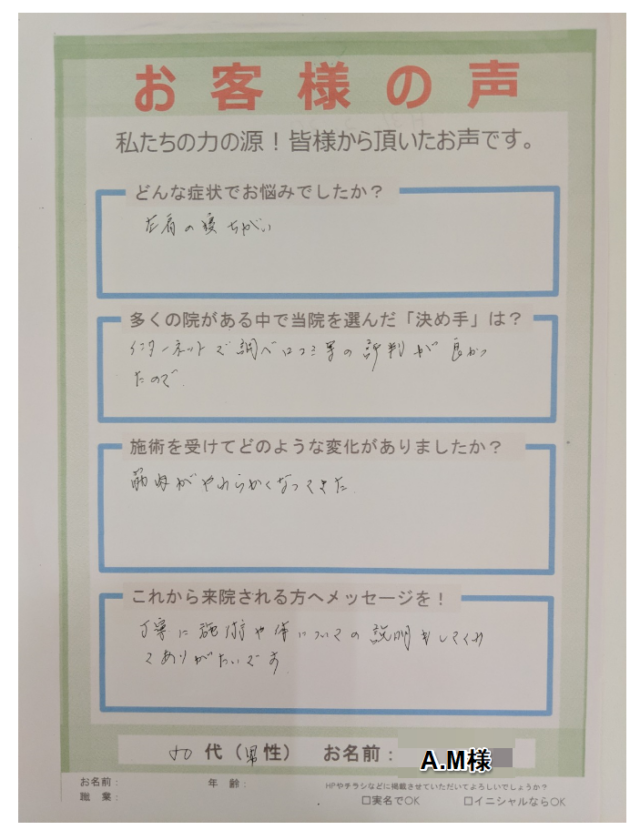 お客様の声
私たちの力の源！皆様から頂いたお声です。
どんな症状でお悩みでしたか？
左肩の寝ちがい
多くの院がある中で当院を選んだ「決め手」は？
インターネットで調べ口コミ等の評判が良かっ
たので.
施術を受けてどのような変化がありましたか？
筋肉がやわらかくなってきた.
これから来院される方へメッセージを！
丁寧に施術や体についての説明をしてくれ
てありがたいです
代（男性） お名前： A.M様
お名前： 年 齢： HPやチラシなどに掲載させていただいてよろしいでしょうか？
職 業： □実名でOK □イニシャルならOK